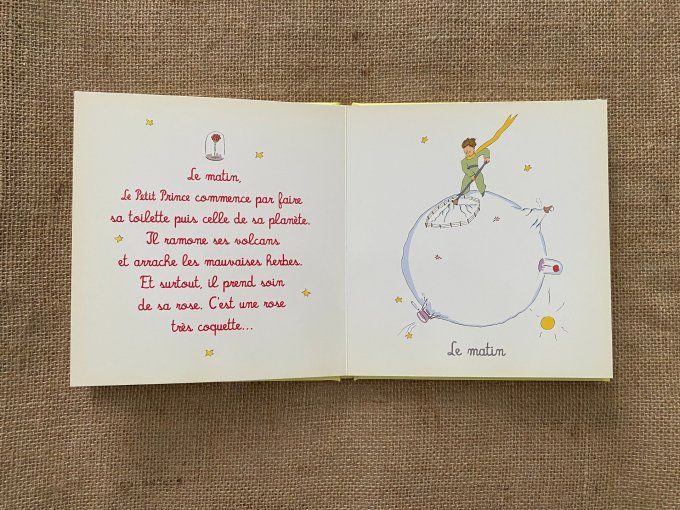 Le matin,
Le Petit Prince commence par faire
sa toilette puis celle de sa planète.
Il ramone ses volcans
et arrache les mauvaises herbes.
Et surtout, il prend soin
de sa rose. C'est une rose
très coquette...
Le matin